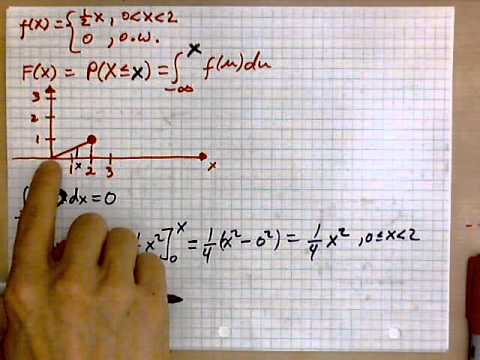 f(x) = { ½x, 0<x<2
0 , o.w.
F(x) = P(X≤x) = ∫_{-∞}^{x} f(u)du
3
2
1
1 x 2 3 x
dx = 0
x²]₀ˣ = 1/4 (x² - 0²) = 1/4 x² , 0≤x<2